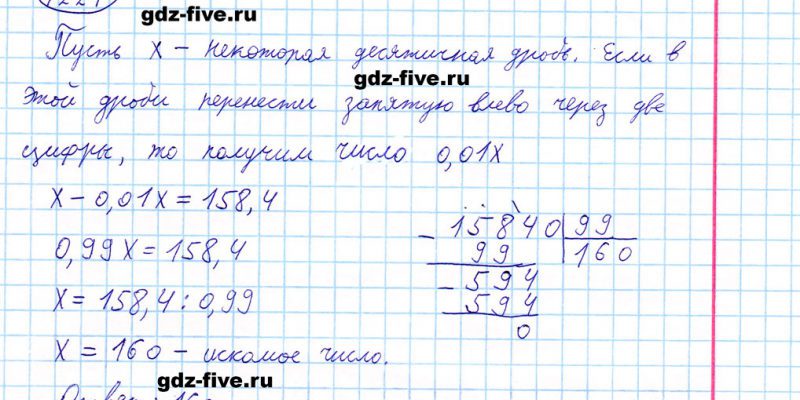 gdz-five.ru
Пусть x - некоторая десятичная дробь. Если в
gdz-five.ru
этой дроби перенести запятую влево через две
цифры, то получим число 0,01x
x - 0,01x = 158,4
0,99x = 158,4
x = 158,4 : 0,99
x = 160 - искомое число.
15840 99
99 160
594
594
0
gdz-five.ru